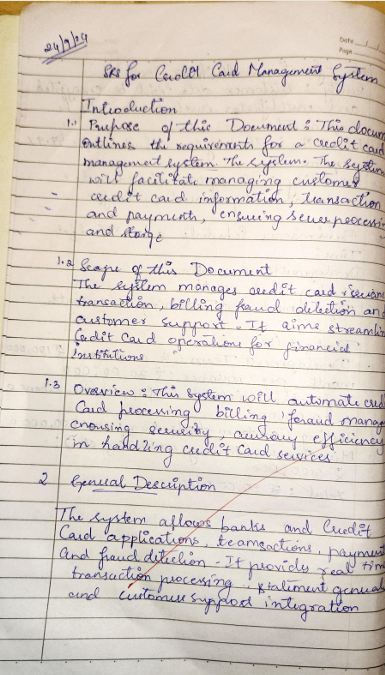 24/9/24
Date
Page
SRS for Credit Card Management System
Introduction
1.1 Purpose of this Document : This docum
outlines the requirements for a credit card
management system. The system. The system
will facilitate managing customer
credit card information, transaction
and payments, ensuring secure processin
and storge
1.2 Scope of this Document
The system manages credit card issuan
transaction, billing fraud detection and
customer support - It aims streamlin
Credit Card operations for financial
institutions
1.3 Overview : This system will automate cred
Card processing billing fraud manag
ensusing security accuracy efficiency
in handling credit card services
2 General Description
The system allows banks and Credit
Card applications, transactions, payment
and fraud detection - It provides real tim
transaction processing, statement genera
and customer support integration